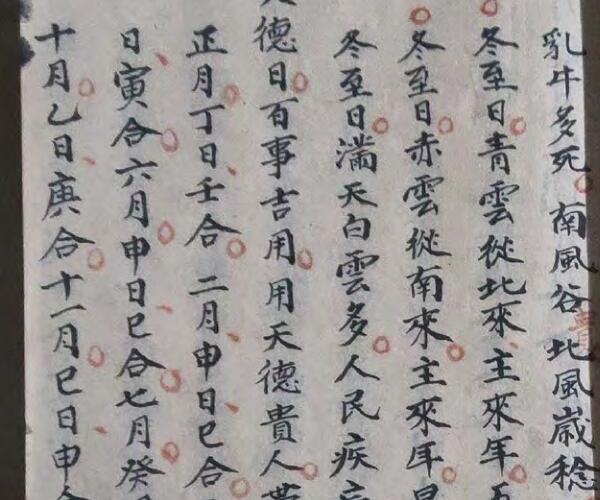 乳牛多死南風谷貴北風歲稔
冬至日青雲從北來主來年
冬至日赤雲從南來主來年旱
冬至日滿天白雲多人民疾
德日百事吉用用天德貴人
正月丁日壬合 二月申日巳合
日寅合六月申日巳合七月癸
十月乙日庚合十一月巳日申合